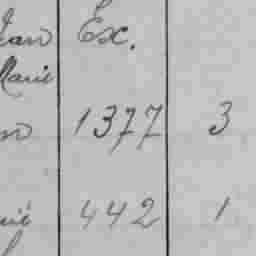 Jean Ex.
Marie
1377 3
442 1